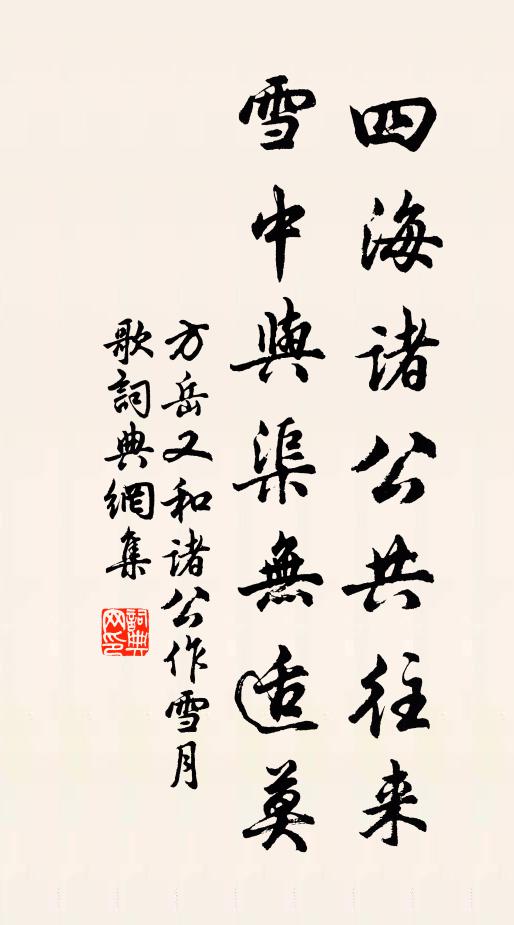 四海诸公共往来
雪中與渠無适莫
方岳又和诸公作雪月
歌詞典網集
詞典
网印